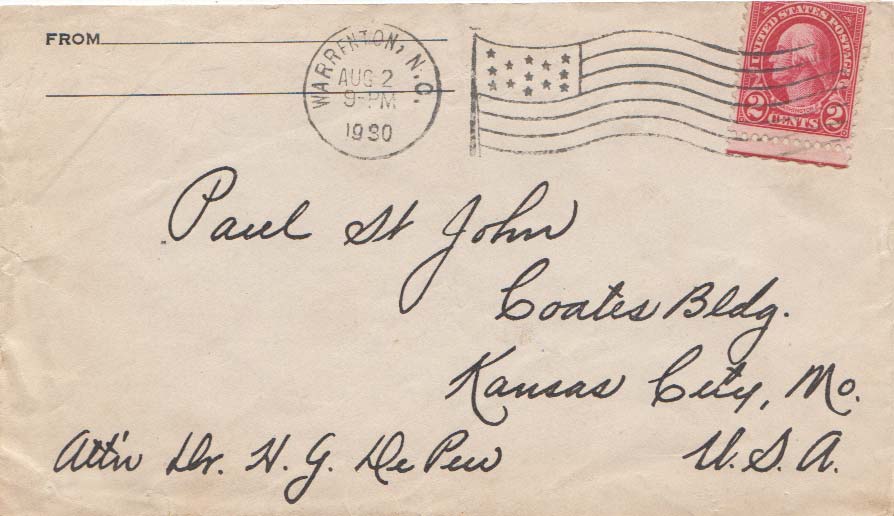 FROM
WARRENTON, N.C.
AUG 2
9-PM
1930
UNITED STATES POSTAGE
WASHINGTON
2 CENTS 2
Paul St John
Coates Bldg.
Kansas City, Mo.
U.S.A.
Att'n Dr. H. G. De Pew